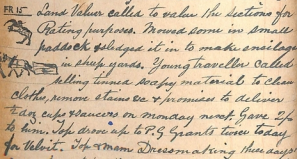 FR 15 Land Valuer called to value the sections for
Rating purposes. Mowed some in small
paddock & sledged it in to make ensilage
in sheep yards. Young traveller called
selling tinned soapy material to clean
clothes, remove stains &c & promises to deliver
cups & saucers on monday next. Gave 2/6
to him. Top drove up to P.G Grants twice today
for Velvit. Top & mem Dressmaking these days